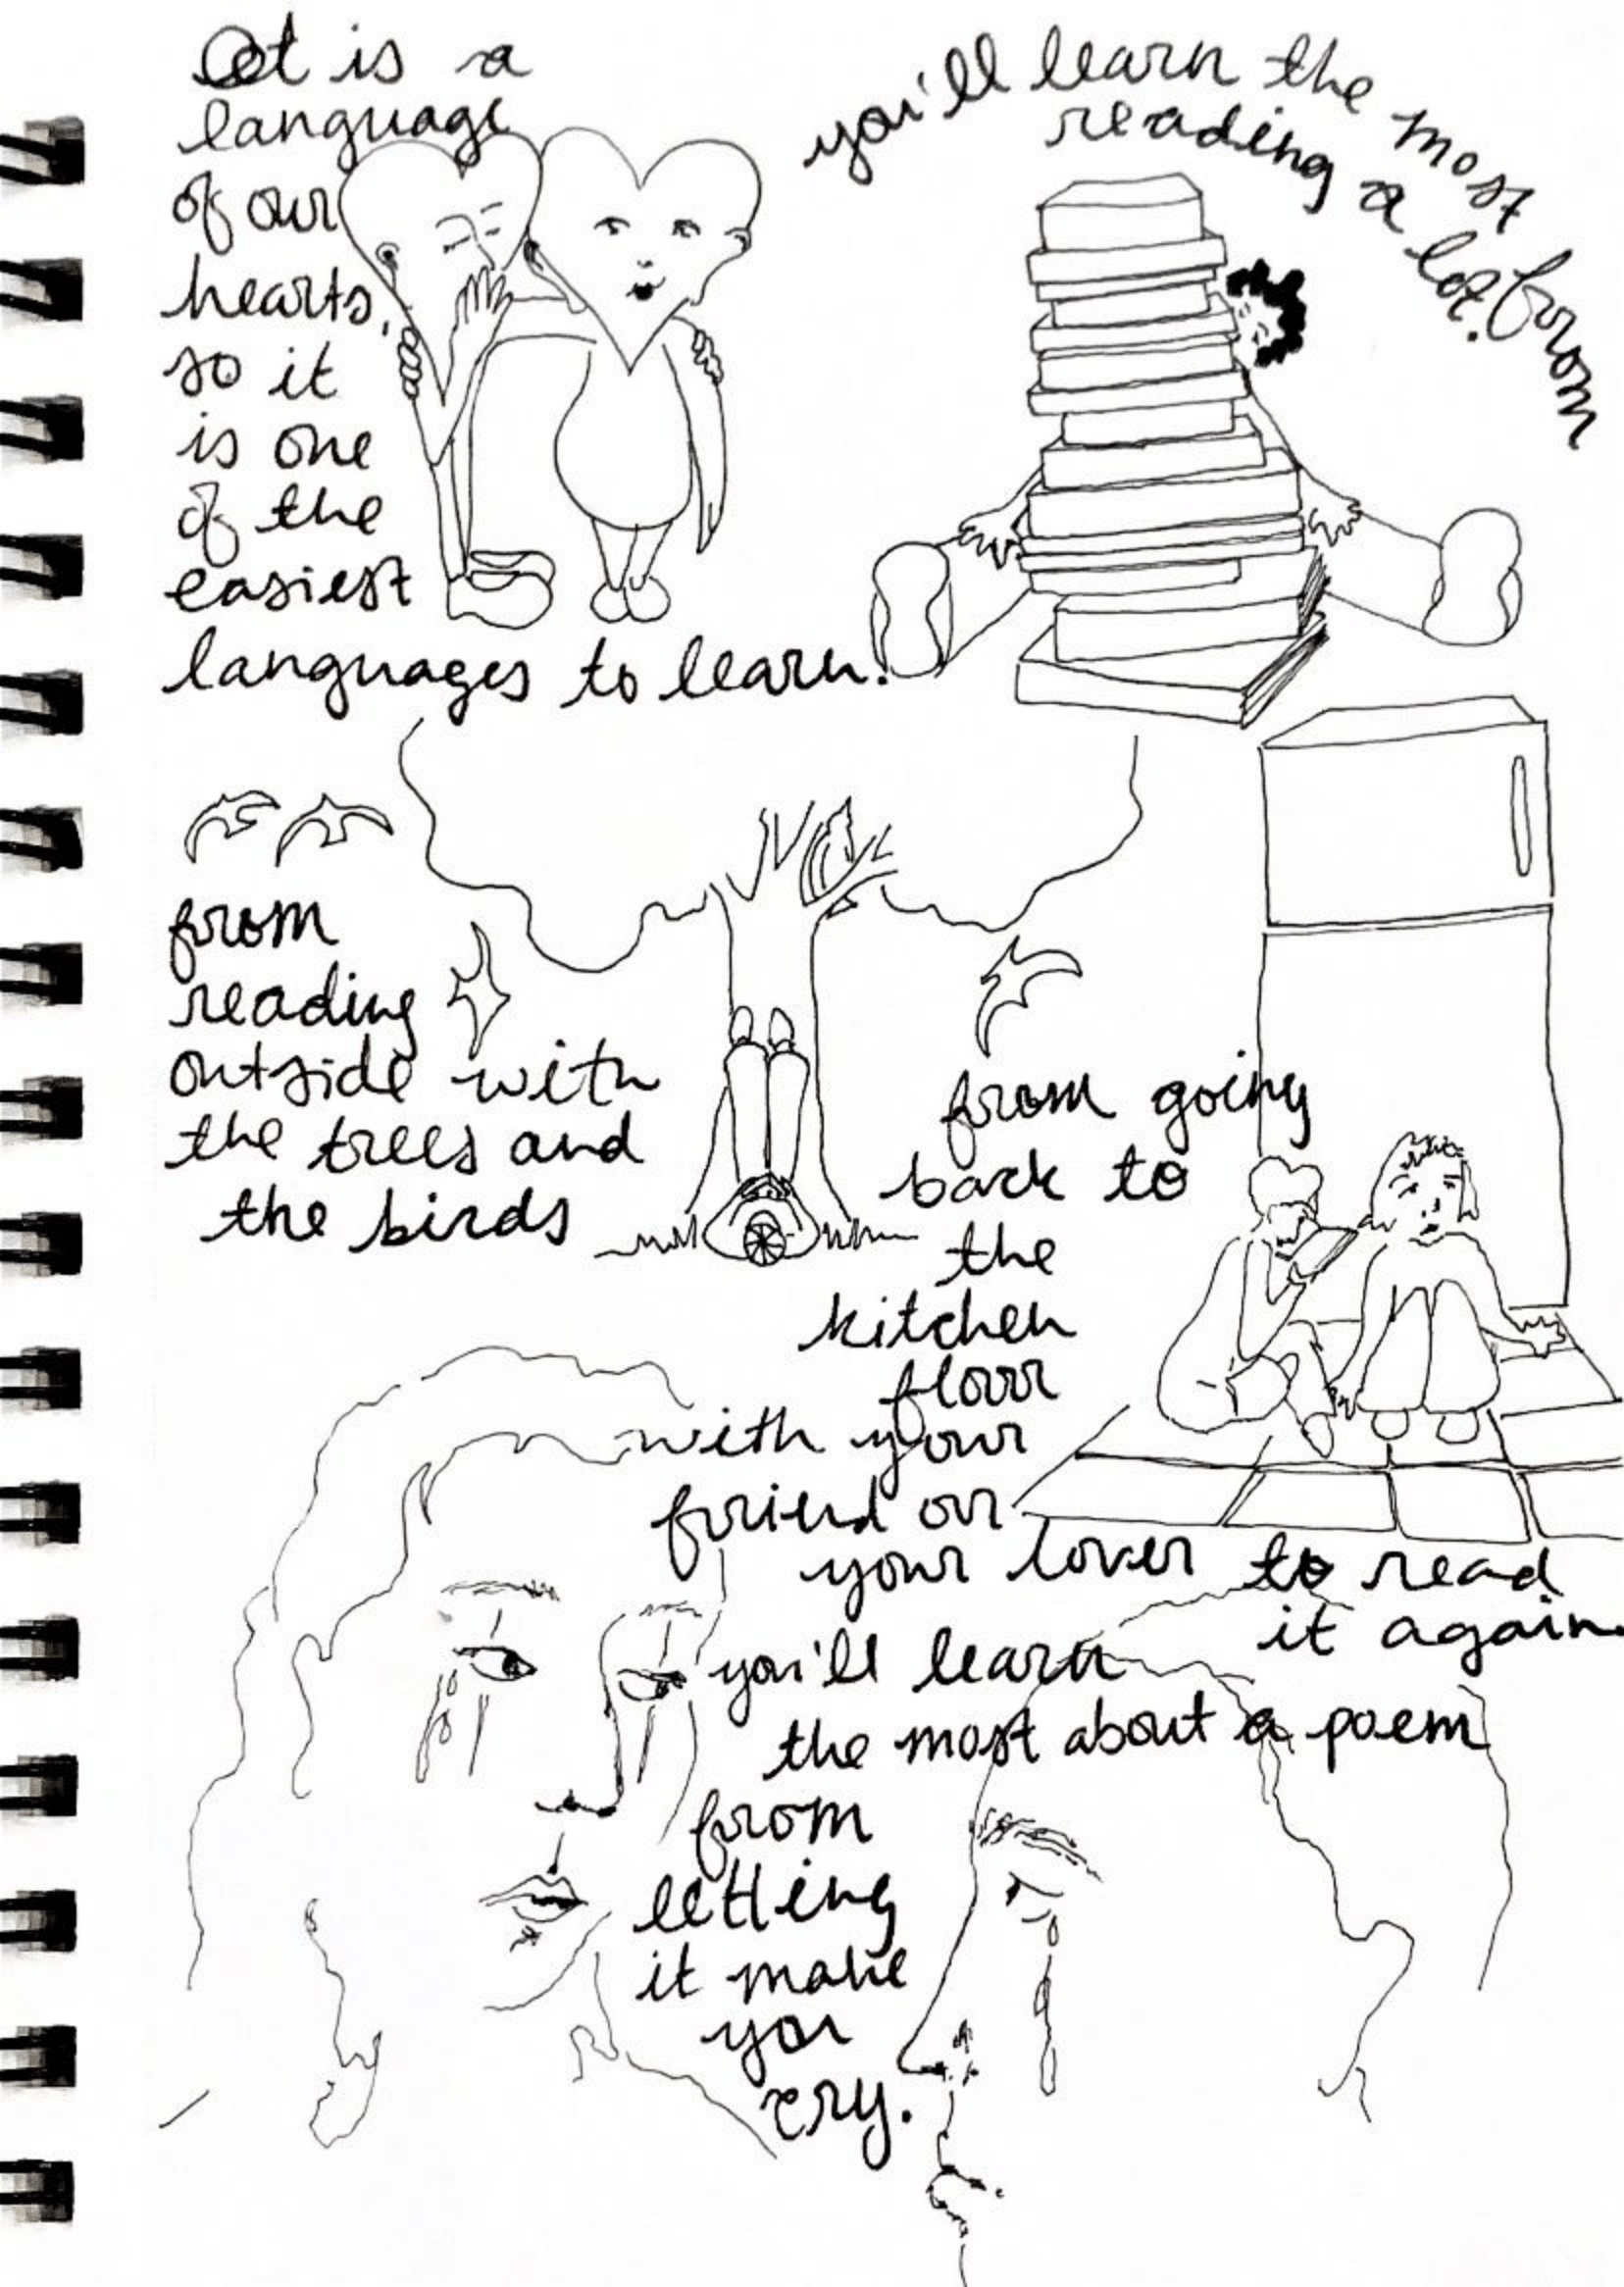 It is a
language
of our
hearts,
so it
is one
of the
easiest
languages to learn.
you'll learn the most from
reading a lot.
from
reading
outside with
the trees and
the birds
from going
back to
the
kitchen
floor
with your
friend or
your lover to read
it again.
you'll learn
the most about a poem
from
letting
it make
you
cry.